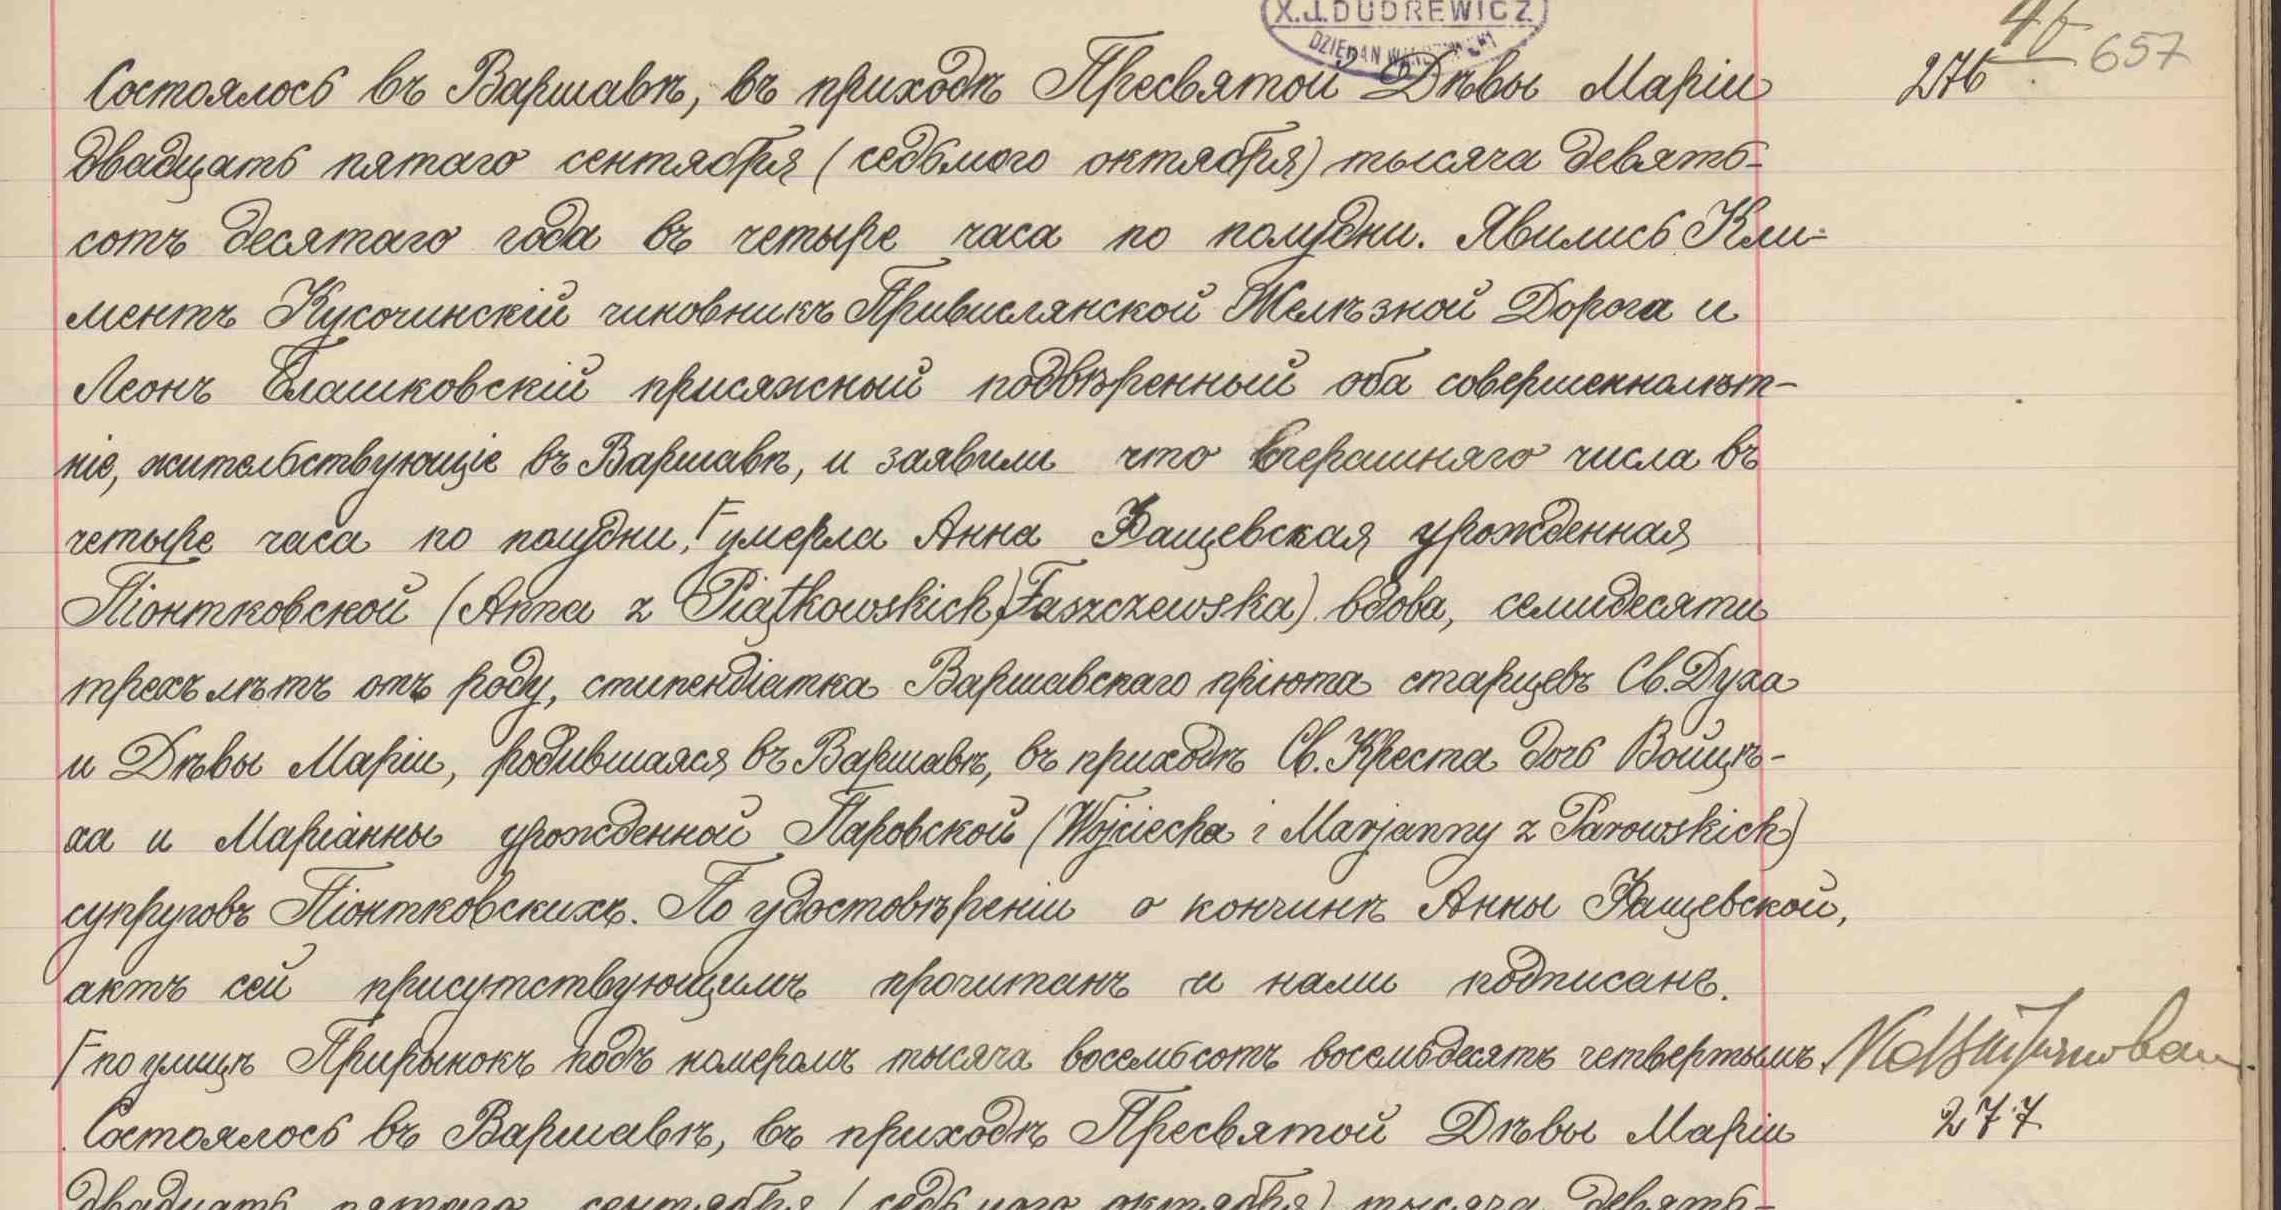 X.J.DUDREWICZ
DZIEKAN
Состоялось въ Варшавѣ, въ приходѣ Пресвятой Дѣвы Маріи
276
657
двадцать пятаго сентября (седьмого октября) тысяча девять-
сотъ десятаго года въ четыре часа по полудни. Явились Кли-
ментъ Кусочинскій чиновникъ Привислянской Желѣзной Дорога и
Леонъ Блашковскій присяжный подвѣренный оба совершеннолѣт-
ніе, жительствующіе въ Варшавѣ, и заявили что вчерашняго числа въ
четыре часа по полудни, Г умерла Анна Фащевская урожденная
Піонтковской (Anna z Piątkowskich) Faszczewska) вдова, семидесяти
трехъ лѣтъ отъ роду, стипендіатка Варшавскаго пріюта старцевъ Св. Духа
и Дѣвы Маріи, родившаяся въ Варшавѣ, въ приходѣ Св. Креста дочь Войцѣ-
ха и Маріанны урожденной Паровской (Wojciecha i Marjanny z Parowskich)
супруговъ Піонтковскихъ. По удостовѣреніи о кончинѣ Анны Фащевской,
актъ сей присутствующимъ прочитанъ и нами подписанъ.
Г по улицѣ Прирынокъ подъ номеромъ тысяча восемьсотъ восемьдесятъ четвертымъ.
277
Состоялось въ Варшавѣ, въ приходѣ Пресвятой Дѣвы Маріи
двадцать пятаго сентября (седьмого октября) тысяча девять-